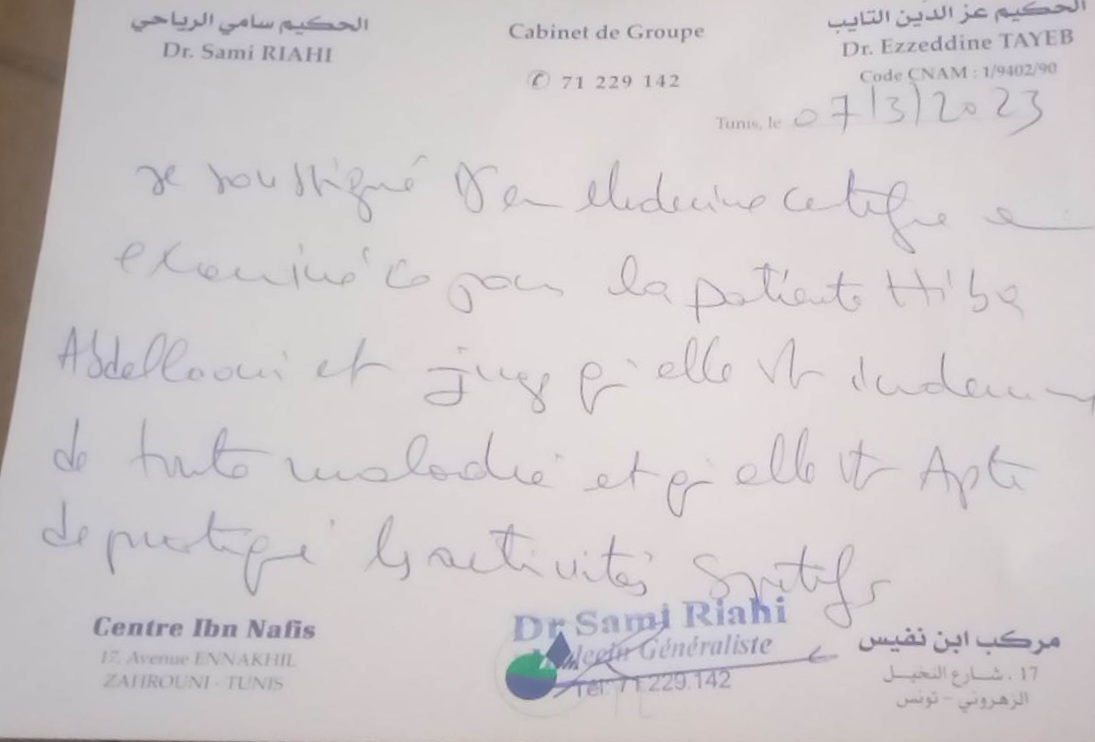 الحكيم سامي الرياحي
Dr. Sami RIAHI
Cabinet de Groupe
✆ 71 229 142
الحكيم عز الدين التايب
Dr. Ezzeddine TAYEB
Code CNAM : 1/9402/90
Tunis, le 07/3/2023
Je soussigné Dr en Medecine certifie
examiné ce jour la patiente Hiba
Abdellaoui et juge qu'elle est indemne
de toute maladie et qu'elle est Apte
de pratiqué les activités sportifs
Centre Ibn Nafis
17, Avenue ENNAKHIL
ZAHROUNI - TUNIS
Dr Sami Riahi
Médecin Généraliste
Tél: 71.229.142
مركب ابن نفيس
17 . شارع النخيل
الزهروني - تونس